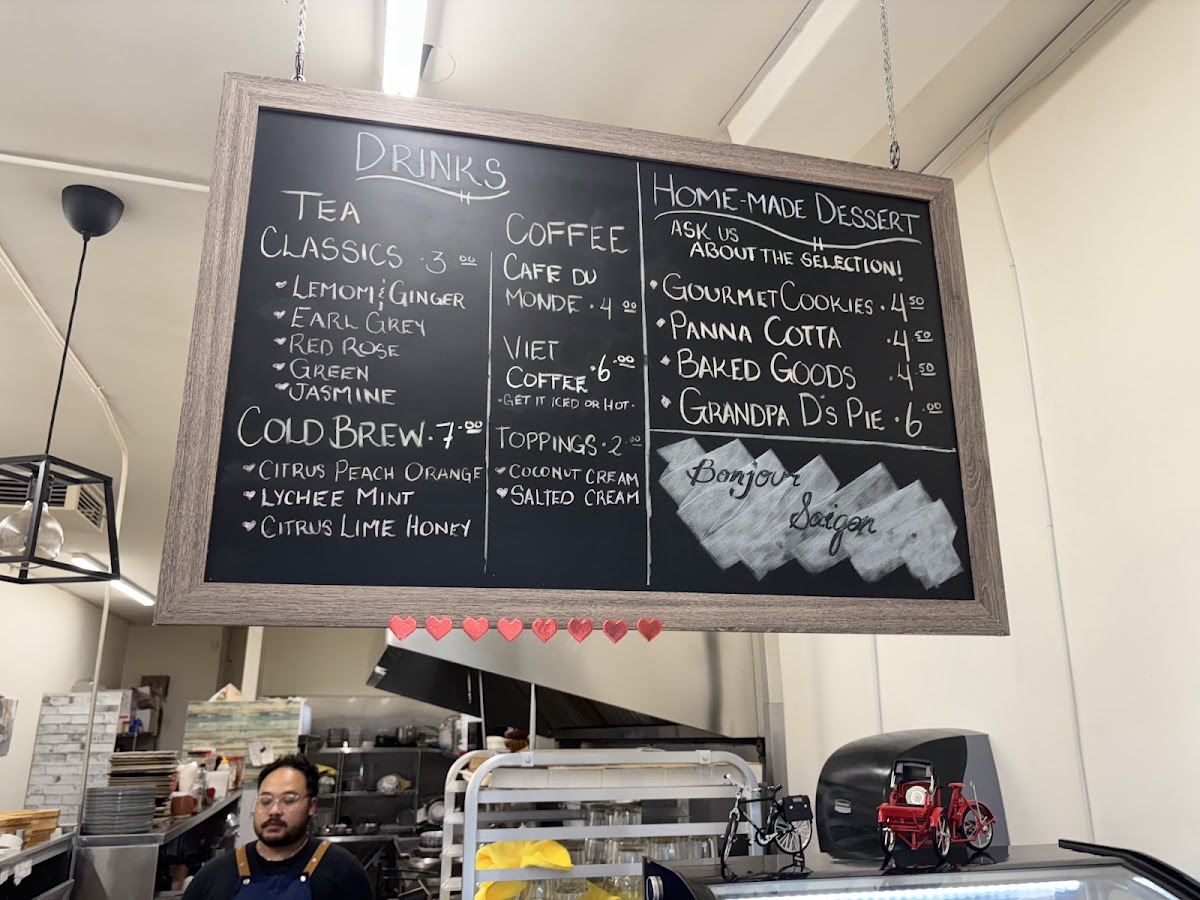 DRINKS
TEA
CLASSICS · 3.00
LEMOM & GINGER
EARL GREY
RED ROSE
GREEN
JASMINE
COLD BREW · 7.00
CITRUS PEACH ORANGE
LYCHEE MINT
CITRUS LIME HONEY
COFFEE
CAFE DU
MONDE · 4.00
VIET
COFFEE · 6.00
- GET IT ICED OR HOT -
TOPPINGS · 2.00
COCONUT CREAM
SALTED CREAM
HOME-MADE DESSERT
ASK US
ABOUT THE SELECTION!
• GOURMET COOKIES · 4.50
• PANNA COTTA · 4.50
• BAKED GOODS · 4.50
• GRANDPA D'S PIE · 6.00
Bonjour
Saigon